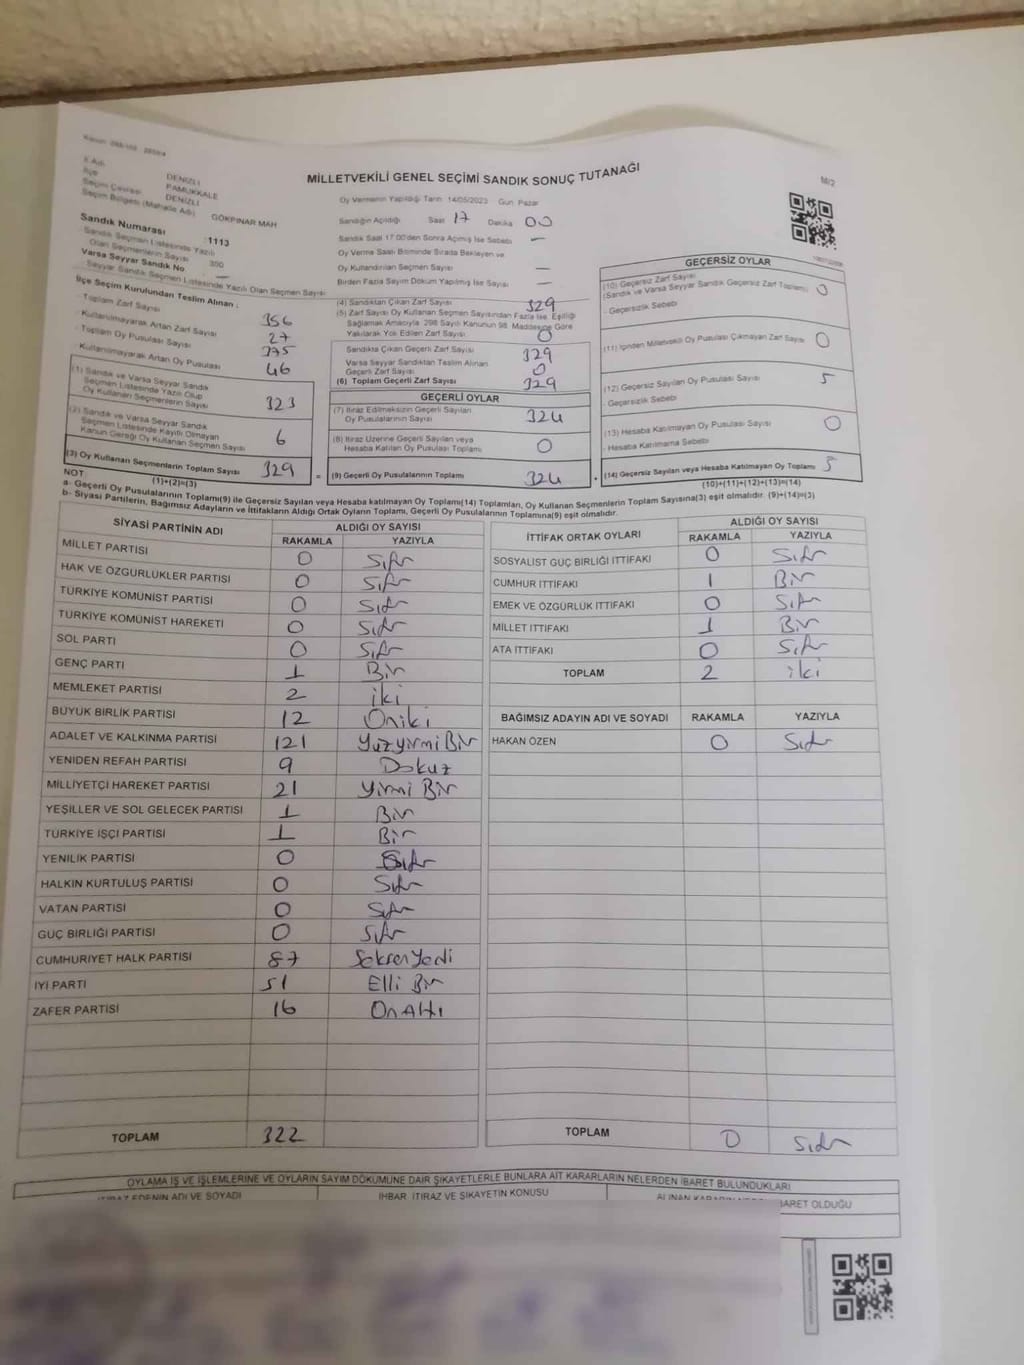 MİLLETVEKİLİ GENEL SEÇİMİ SANDIK SONUÇ TUTANAĞI
M/2
İl Adı DENİZLİ
İlçe PAMUKKALE
Seçim Çevresi DENİZLİ
Seçim Bölgesi (Mahalle Adı) GÖKPINAR MAH
Sandık Numarası : 1113
Sandık Seçmen Listesinde Yazılı
Olan Seçmenlerin Sayısı 350
Varsa Seyyar Sandık No —
Seyyar Sandık Seçmen Listesinde Yazılı Olan Seçmen Sayısı
Oy Vermenin Yapıldığı Tarih 14/05/2023 Gün Pazar
Sandığın Açıldığı Saat 17 Dakika 00
Sandık Saat 17:00'den Sonra Açılmış İse Sebebi —
Oy Verme Saati Bitiminde Sırada Bekleyen ve
Oy Kullandırılan Seçmen Sayısı —
Birden Fazla Sayım Döküm Yapılmış İse Sayısı —
İlçe Seçim Kurulundan Teslim Alınan :
- Toplam Zarf Sayısı 356
- Kullanılmayarak Artan Zarf Sayısı 27
- Toplam Oy Pusulası Sayısı 375
- Kullanılmayarak Artan Oy Pusulası 46
(1) Sandık ve Varsa Seyyar Sandık
Seçmen Listesinde Yazılı Olup
Oy Kullanan Seçmenlerin Sayısı 323
(2) Sandık ve Varsa Seyyar Sandık
Seçmen Listesinde Kayıtlı Olmayan
Kanun Gereği Oy Kullanan Seçmen Sayısı 6
(3) Oy Kullanan Seçmenlerin Toplam Sayısı 329
(1)+(2)=(3)
(4) Sandıktan Çıkan Zarf Sayısı 329
(5) Zarf Sayısı Oy Kullanan Seçmen Sayısından Fazla İse, Eşitliği
Sağlamak Amacıyla 298 Sayılı Kanunun 98. Maddesine Göre
Yakılarak Yok Edilen Zarf Sayısı 0
Sandıkta Çıkan Geçerli Zarf Sayısı 329
Varsa Seyyar Sandıktan Teslim Alınan
Geçerli Zarf Sayısı 0
(6) Toplam Geçerli Zarf Sayısı 329
GEÇERLİ OYLAR
(7) İtiraz Edilmeksizin Geçerli Sayılan
Oy Pusulalarının Sayısı 324
(8) İtiraz Üzerine Geçerli Sayılan veya
Hesaba Katılan Oy Pusulası Toplamı 0
= (9) Geçerli Oy Pusulalarının Toplamı 324
GEÇERSİZ OYLAR
(10) Geçersiz Zarf Sayısı
(Sandık ve Varsa Seyyar Sandık Geçersiz Zarf Toplamı) 0
- Geçersizlik Sebebi
(11) İçinden Milletvekili Oy Pusulası Çıkmayan Zarf Sayısı 0
(12) Geçersiz Sayılan Oy Pusulası Sayısı 5
- Geçersizlik Sebebi
(13) Hesaba Katılmayan Oy Pusulası Sayısı 0
- Hesaba Katılmama Sebebi
+ (14) Geçersiz Sayılan veya Hesaba Katılmayan Oy Toplamı 5
(10)+(11)+(12)+(13)=(14)
NOT:
a- Geçerli Oy Pusulalarının Toplamı(9) ile Geçersiz Sayılan veya Hesaba katılmayan Oy Toplamı(14) Toplamları, Oy Kullanan Seçmenlerin Toplam Sayısına(3) eşit olmalıdır. (9)+(14)=(3)
b- Siyasi Partilerin, Bağımsız Adayların ve İttifakların Aldığı Ortak Oyların Toplamı, Geçerli Oy Pusulalarının Toplamına(9) eşit olmalıdır.
SİYASİ PARTİNİN ADI ALDIĞI OY SAYISI
RAKAMLA YAZIYLA
MİLLET PARTİSİ 0 Sıfır
HAK VE ÖZGÜRLÜKLER PARTİSİ 0 Sıfır
TÜRKİYE KOMÜNİST PARTİSİ 0 Sıfır
TÜRKİYE KOMÜNİST HAREKETİ 0 Sıfır
SOL PARTİ 0 Sıfır
GENÇ PARTİ 1 Bir
MEMLEKET PARTİSİ 2 iki
BÜYÜK BİRLİK PARTİSİ 12 Oniki
ADALET VE KALKINMA PARTİSİ 121 YüzyirmiBir
YENİDEN REFAH PARTİSİ 9 Dokuz
MİLLİYETÇİ HAREKET PARTİSİ 21 Yirmi Bir
YEŞİLLER VE SOL GELECEK PARTİSİ 1 Bir
TÜRKİYE İŞÇİ PARTİSİ 1 Bir
YENİLİK PARTİSİ 0 Sıfır
HALKIN KURTULUŞ PARTİSİ 0 Sıfır
VATAN PARTİSİ 0 Sıfır
GÜÇ BİRLİĞİ PARTİSİ 0 Sıfır
CUMHURİYET HALK PARTİSİ 87 SeksenYedi
İYİ PARTİ 51 Elli Bir
ZAFER PARTİSİ 16 OnAltı
TOPLAM 322
İTTİFAK ORTAK OYLARI ALDIĞI OY SAYISI
RAKAMLA YAZIYLA
SOSYALİST GÜÇ BİRLİĞİ İTTİFAKI 0 Sıfır
CUMHUR İTTİFAKI 1 Bir
EMEK VE ÖZGÜRLÜK İTTİFAKI 0 Sıfır
MİLLET İTTİFAKI 1 Bir
ATA İTTİFAKI 0 Sıfır
TOPLAM 2 iki
BAĞIMSIZ ADAYIN ADI VE SOYADI RAKAMLA YAZIYLA
HAKAN ÖZEN 0 Sıfır
TOPLAM 0 Sıfır
OYLAMA İŞ VE İŞLEMLERİNE VE OYLARIN SAYIM DÖKÜMÜNE DAİR ŞİKAYETLERLE BUNLARA AİT KARARLARIN NELERDEN İBARET BULUNDUKLARI
İTİRAZ EDENİN ADI VE SOYADI
İHBAR, İTİRAZ VE ŞİKAYETİN KONUSU
ALINAN KARARIN NEDEN İBARET OLDUĞU